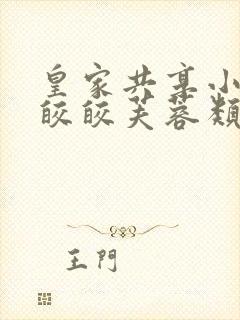 皇家共享小
皎皎芙蓉類
王門